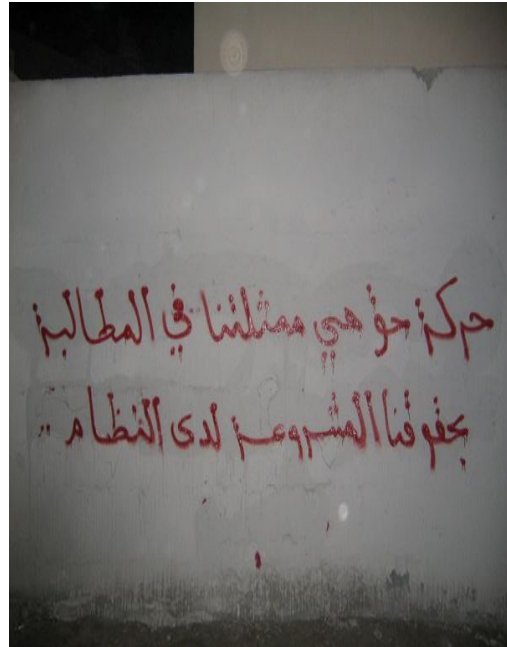 حركة حق هي ممثلتنا في المطالبة
بحقوقنا المشروعة لدى النظام ..